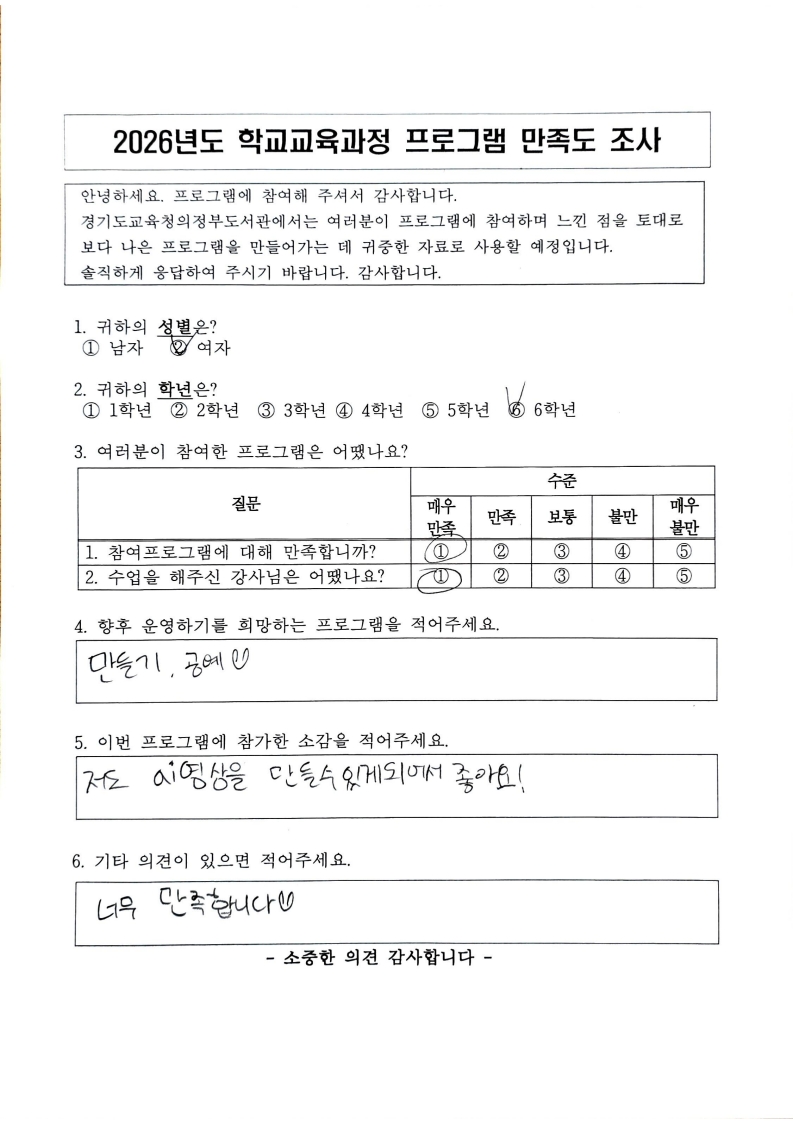 2026년도 학교교육과정 프로그램 만족도 조사
안녕하세요. 프로그램에 참여해 주셔서 감사합니다.
경기도교육청의정부도서관에서는 여러분이 프로그램에 참여하며 느낀 점을 토대로
보다 나은 프로그램을 만들어가는 데 귀중한 자료로 사용할 예정입니다.
솔직하게 응답하여 주시기 바랍니다. 감사합니다.
1. 귀하의 성별은?
① 남자 ② 여자
2. 귀하의 학년은?
① 1학년 ② 2학년 ③ 3학년 ④ 4학년 ⑤ 5학년 ⑥ 6학년
3. 여러분이 참여한 프로그램은 어땠나요?
질문 수준
매우 만족 만족 보통 불만 매우 불만
1. 참여프로그램에 대해 만족합니까? ① ② ③ ④ ⑤
2. 수업을 해주신 강사님은 어땠나요? ① ② ③ ④ ⑤
4. 향후 운영하기를 희망하는 프로그램을 적어주세요.
만들기, 공예
5. 이번 프로그램에 참가한 소감을 적어주세요.
저도 ai영상을 만들수있게되어서 좋아요!
6. 기타 의견이 있으면 적어주세요.
너무 만족합니다
- 소중한 의견 감사합니다 -